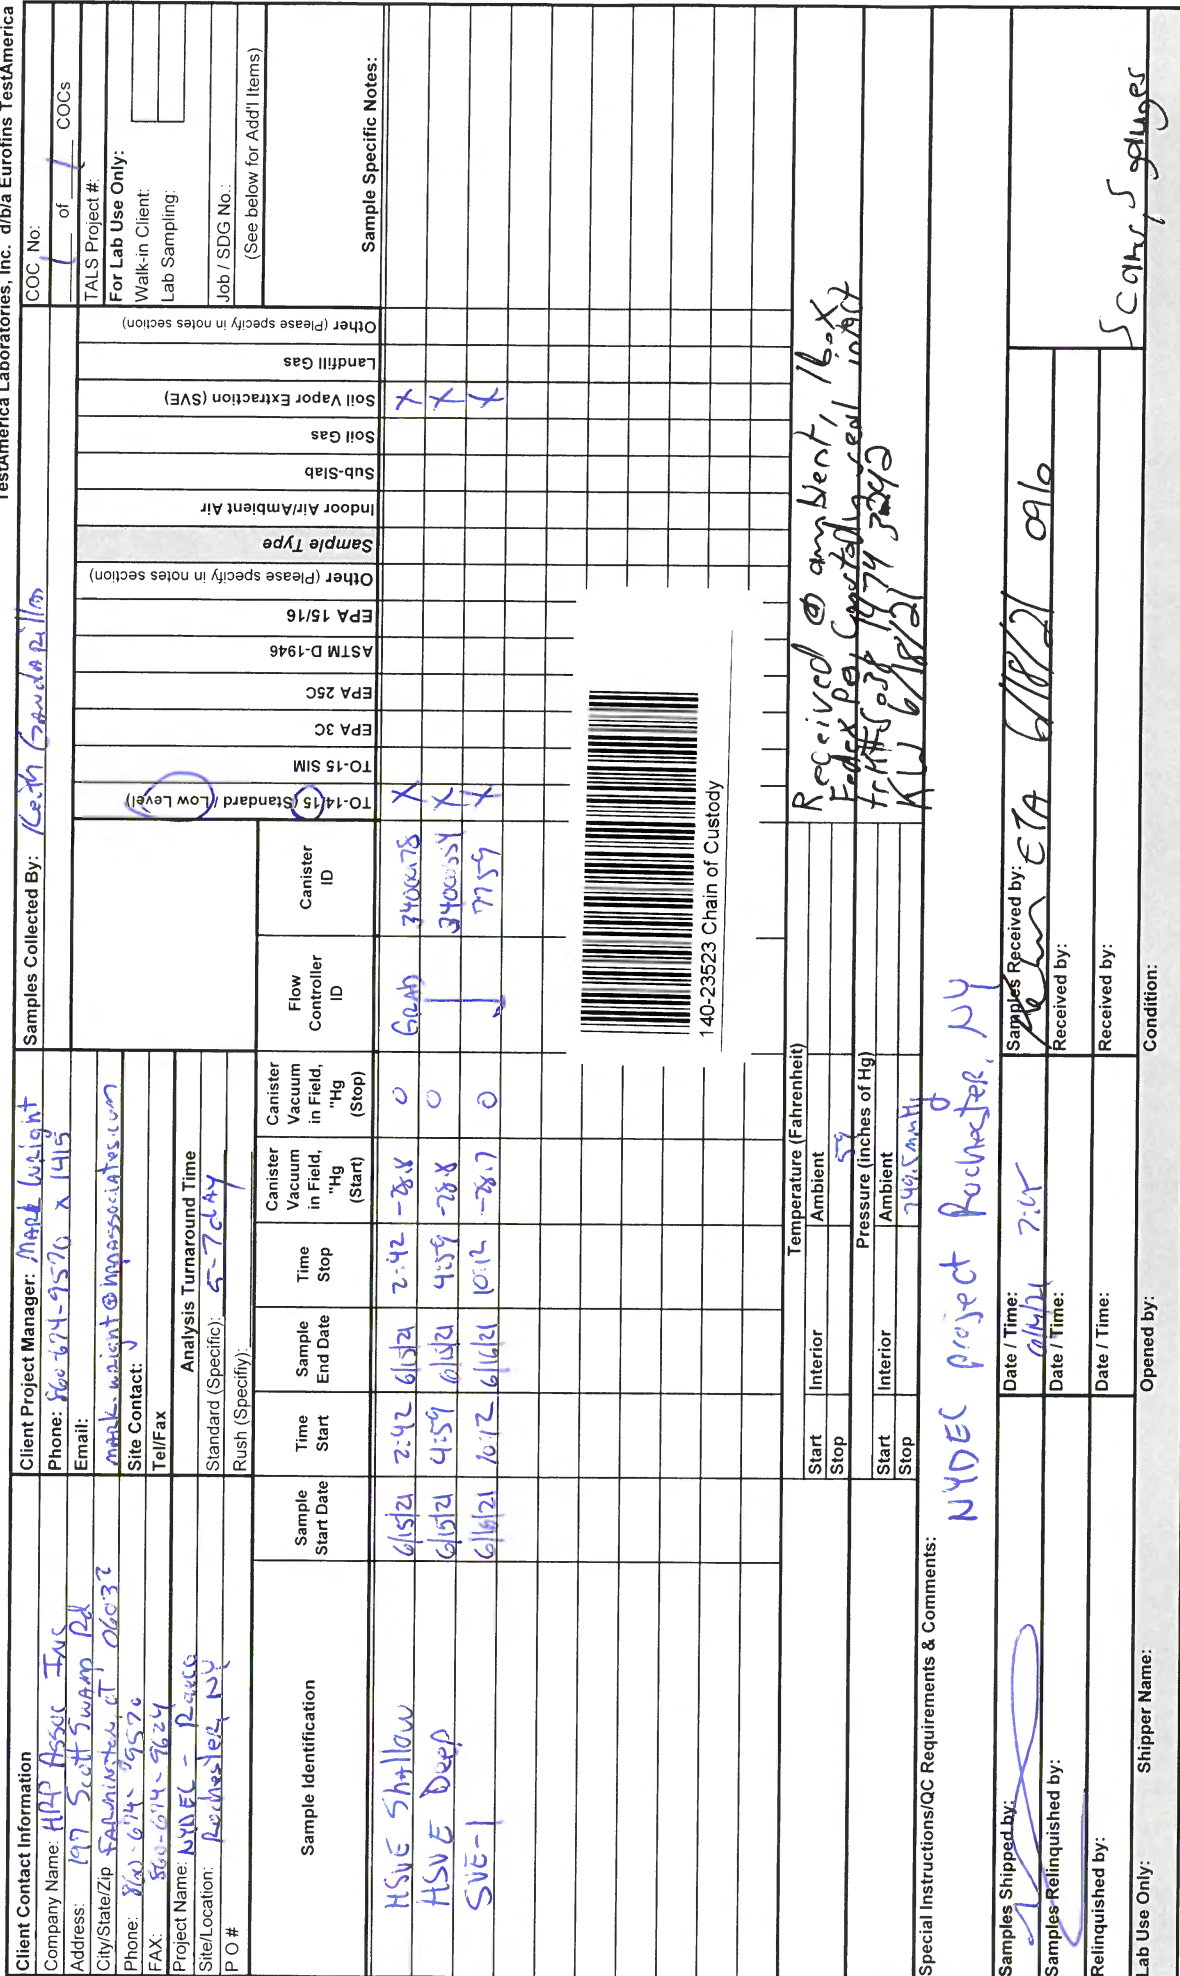 TestAmerica Laboratories, Inc. d/b/a Eurofins TestAmerica
Client Contact Information
Company Name: HRP Assoc Inc
Address: 197 Scott Swamp Rd
City/State/Zip Farmington, CT 06032
Phone: 860-674-9570
FAX: 860-674-9624
Project Name: NYDEC -
Site/Location: Rochester, NY
P O #
Client Project Manager: Mark Wright
Phone: 860-674-9570 x 1415
Email:
mark.wright@hrpassociates.com
Site Contact:
Tel/Fax
Analysis Turnaround Time
Standard (Specific): 5-7 day
Rush (Specifiy):
Samples Collected By: Keith
COC No:
1 of 1 COCs
TALS Project #:
For Lab Use Only:
Walk-in Client:
Lab Sampling:
Job / SDG No.:
(See below for Add'l Items)
Sample Identification
Sample Start Date
Time Start
Sample End Date
Time Stop
Canister Vacuum in Field, "Hg (Start)
Canister Vacuum in Field, "Hg (Stop)
Flow Controller ID
Canister ID
TO-14/15 (Standard / Low Level)
TO-15 SIM
EPA 3C
EPA 25C
ASTM D-1946
EPA 15/16
Other (Please specify in notes section)
Sample Type
Indoor Air/Ambient Air
Sub-Slab
Soil Gas
Soil Vapor Extraction (SVE)
Landfill Gas
Other (Please specify in notes section)
Sample Specific Notes:
HSVE Shallow 6/15/21 2:42 6/15/21 2:42 -28.8 0 GRAB X X
HSVE Deep 6/15/21 4:59 6/15/21 4:59 -28.8 0 X X
SVE-1 6/16/21 10:12 6/16/21 10:12 -28.7 0 7759 X X
140-23523 Chain of Custody
Temperature (Fahrenheit)
Interior Ambient
Start
Stop 59
Pressure (inches of Hg)
Interior Ambient
Start
Stop 749.5 mmHg
Received @ ambient, 1 box
Fedex PO, Custody seal intact
Tr# 5038 1474 3242
KW 6/18/21
Special Instructions/QC Requirements & Comments:
NYDEC project Rochester, NY
Samples Shipped by:
Date / Time:
Samples Received by:
ETA 6/18/21 0910
Samples Relinquished by:
Date / Time:
Received by:
Relinquished by:
Date / Time:
Received by:
5 cans, 5 gauges
Lab Use Only:
Shipper Name:
Opened by:
Condition: